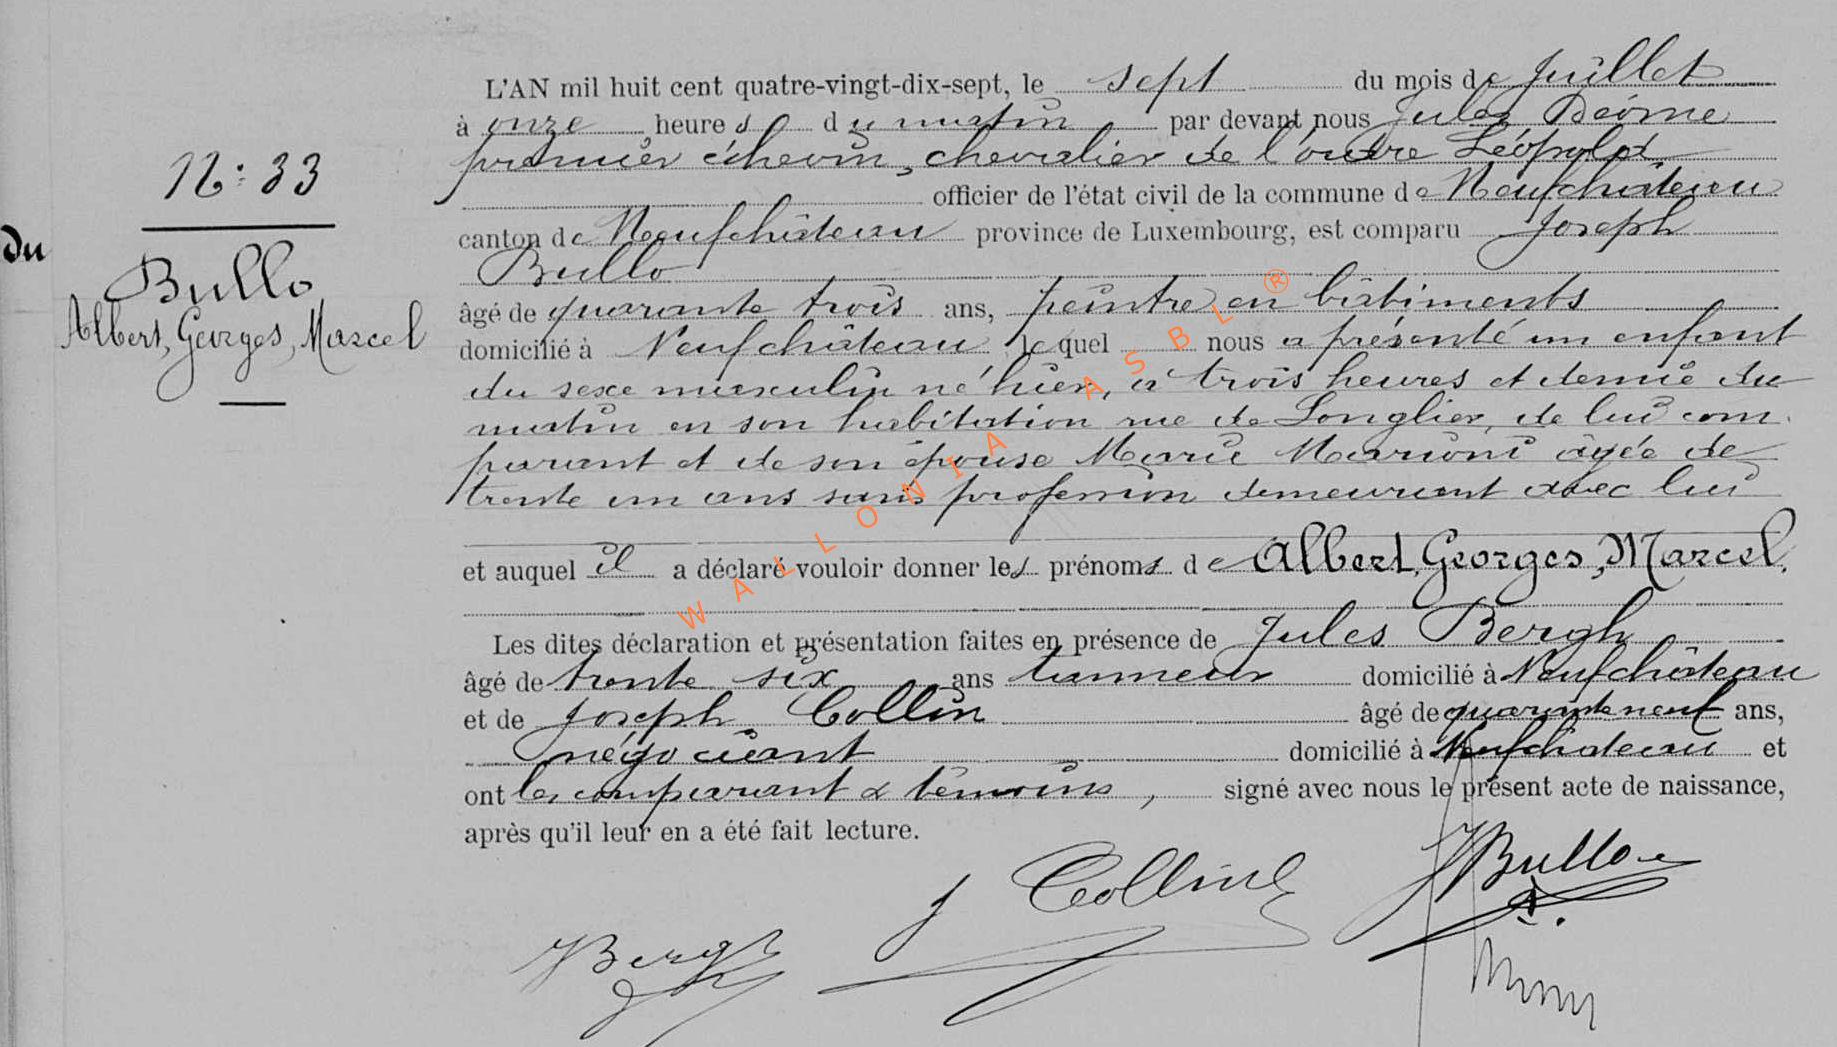 N: 33
du
Bullo
Albert, Georges, Marcel
L'AN mil huit cent quatre-vingt-dix-sept, le sept du mois de Juillet
à onze heures du matin par devant nous Jules
premier échevin, chevalier de l'ordre Léopold
officier de l'état civil de la commune de Neufchâteau
canton de Neufchâteau province de Luxembourg, est comparu Joseph
Bullo
âgé de quarante trois ans, peintre en bâtiments
domicilié à Neufchâteau lequel nous a présenté un enfant
du sexe masculin né hier, à trois heures et demie du
matin en son habitation rue de Longlier, de lui com
parant et de son épouse Marie Marioni âgée de
trente un ans sans profession demeurant avec lui
et auquel il a déclaré vouloir donner les prénoms de Albert, Georges, Marcel.
Les dites déclaration et présentation faites en présence de Jules Bergh
âgé de trente six ans tanneur domicilié à Neufchâteau
et de Joseph Collin âgé de quarante neuf ans,
négociant domicilié à Neufchateau et
ont les comparant & témoins, signé avec nous le présent acte de naissance,
après qu'il leur en a été fait lecture.
JBergh
J Collin
JBullo
WALLONIA ASBL ®